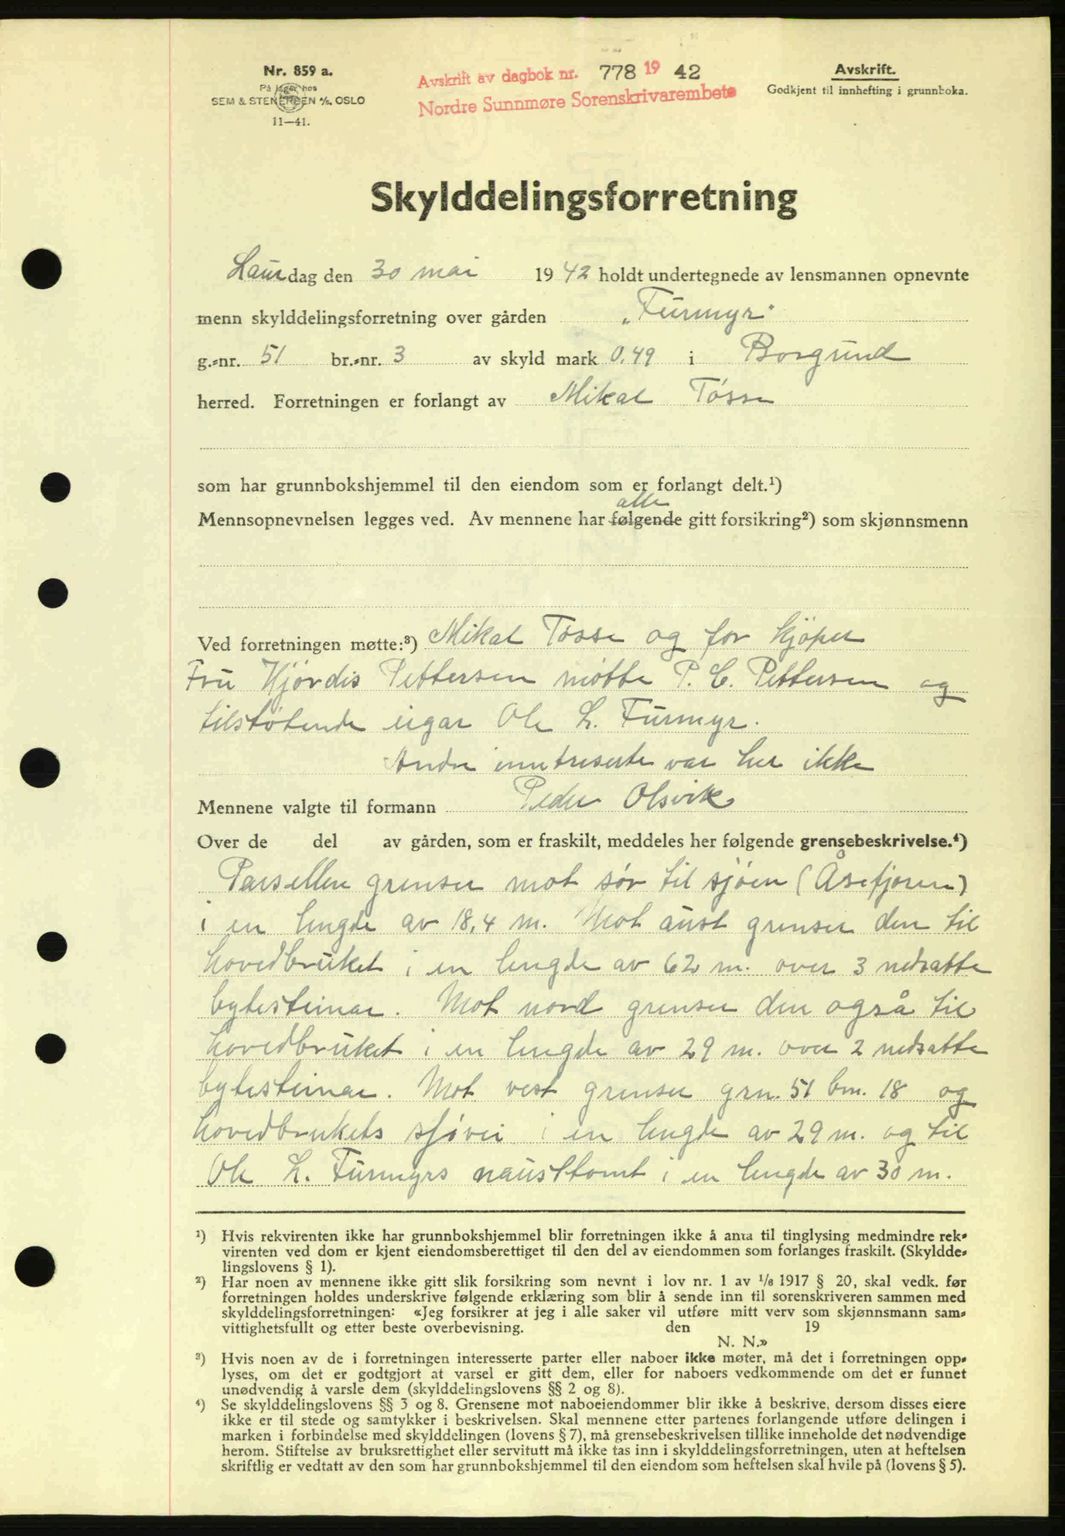 Nr. 859 a.
På lager hos
SEM & STENERSEN A/S. OSLO
11—41.
Avskrift av dagbok nr. 778 1942
Nordre Sunnmøre Sorenskrivarembete
Avskrift.
Godkjent til innhefting i grunnboka.
Skylddelingsforretning
Laurdag den 30 mai 1942 holdt undertegnede av lensmannen opnevnte
menn skylddelingsforretning over gården „Furmyr"
g.-nr. 51 br.-nr. 3 av skyld mark 0.49 i Borgund
herred. Forretningen er forlangt av Mikal Tösse
som har grunnbokshjemmel til den eiendom som er forlangt delt.¹)
alle
Mennsopnevnelsen legges ved. Av mennene har følgende gitt forsikring²) som skjønnsmenn
Ved forretningen møtte:³) Mikal Tösse og for kjöper
Fru Hjördis Pettersen møtte P. C. Pettersen og
tilstötende eigar Ole L. Furmyr.
Andre inntreserte var her ikke
Mennene valgte til formann Peder Olsvik
Over de del av gården, som er fraskilt, meddeles her følgende grensebeskrivelse.⁴)
Parsellen grenser mot sör til sjöen (Åsefjoren)
i en lengde av 18,4 m. Mot aust grenser den til
hovedbruket i en lengde av 62 m. over 3 nedsatte
bytesteinar. Mot nord grenser den også til
hovedbruket i en lengde av 29 m. over 2 nedsatte
bytesteinar. Mot vest grenser grn. 51 bm. 18 og
hovedbrukets sjövei i en lengde av 29 m. og til
Ole L. Furmyrs nausttomt i en lengde av 30 m.
¹) Hvis rekvirenten ikke har grunnbokshjemmel blir forretningen ikke å anta til tinglysing medmindre rek-
virenten ved dom er kjent eiendomsberettiget til den del av eiendommen som forlanges fraskilt. (Skyldde-
lingslovens § 1).
²) Har noen av mennene ikke gitt slik forsikring som nevnt i lov nr. 1 av 1/6 1917 § 20, skal vedk. før
forretningen holdes underskrive følgende erklæring som blir å sende inn til sorenskriveren sammen med
skylddelingsforretningen: «Jeg forsikrer at jeg i alle saker vil utføre mitt verv som skjønnsmann sam-
vittighetsfullt og etter beste overbevisning. den 19
N. N.»
³) Hvis noen av de i forretningen interesserte parter eller naboer ikke møter, må det i forretningen opp-
lyses, om det er godtgjort at varsel er gitt dem, eller for naboers vedkommende om det er funnet
unødvendig å varsle dem (skylddelingslovens §§ 2 og 8).
⁴) Se skylddelingslovens §§ 3 og 8. Grensene mot naboeiendommer blir ikke å beskrive, dersom disses eiere
ikke er til stede og samtykker i beskrivelsen. Skal mennene etter partenes forlangende utføre delingen i
marken i forbindelse med skylddelingen (lovens § 7), må grensebeskrivelsen tillike inneholde det nødvendige
herom. Stiftelse av bruksrettighet eller servitutt må ikke tas inn i skylddelingsforretningen, uten at heftelsen
skriftlig er vedtatt av den som har grunnbokshjemmel til den eiendom som heftelsen skal hvile på (lovens § 5).